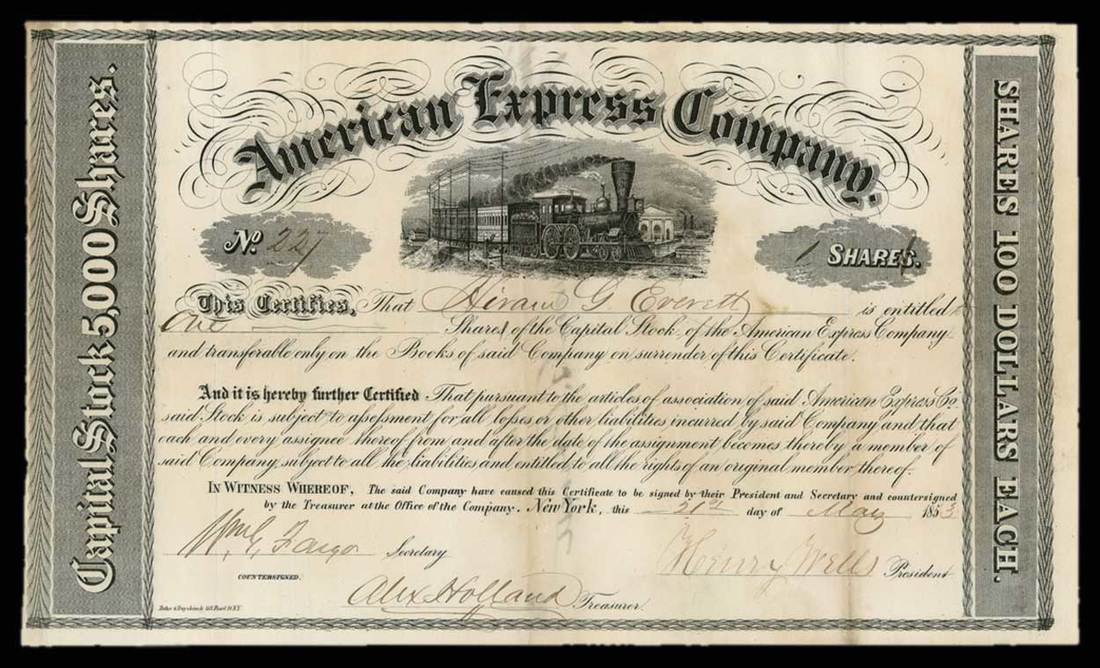 American Express Company.
Capital Stock 5,000 Shares.
SHARES 100 DOLLARS EACH.
No. 227
1 SHARES.
This Certifies, That Hiram G Everett is entitled to
One Shares of the Capital Stock of the American Express Company
and transferable only on the Books of said Company on surrender of this Certificate.
And it is hereby further Certified That pursuant to the articles of association of said American Express Co.
said Stock is subject to assessment for all losses or other liabilities incurred by said Company and that
each and every assignee thereof from and after the date of the assignment becomes thereby a member of
said Company, subject to all the liabilities and entitled to all the rights of an original member thereof.
IN WITNESS WHEREOF, The said Company have caused this Certificate to be signed by their President and Secretary and countersigned
by the Treasurer at the Office of the Company. New York, this 21st day of May 1853
Wm G Fargo Secretary
Henry Wells President
COUNTERSIGNED.
Alex Holland Treasurer.